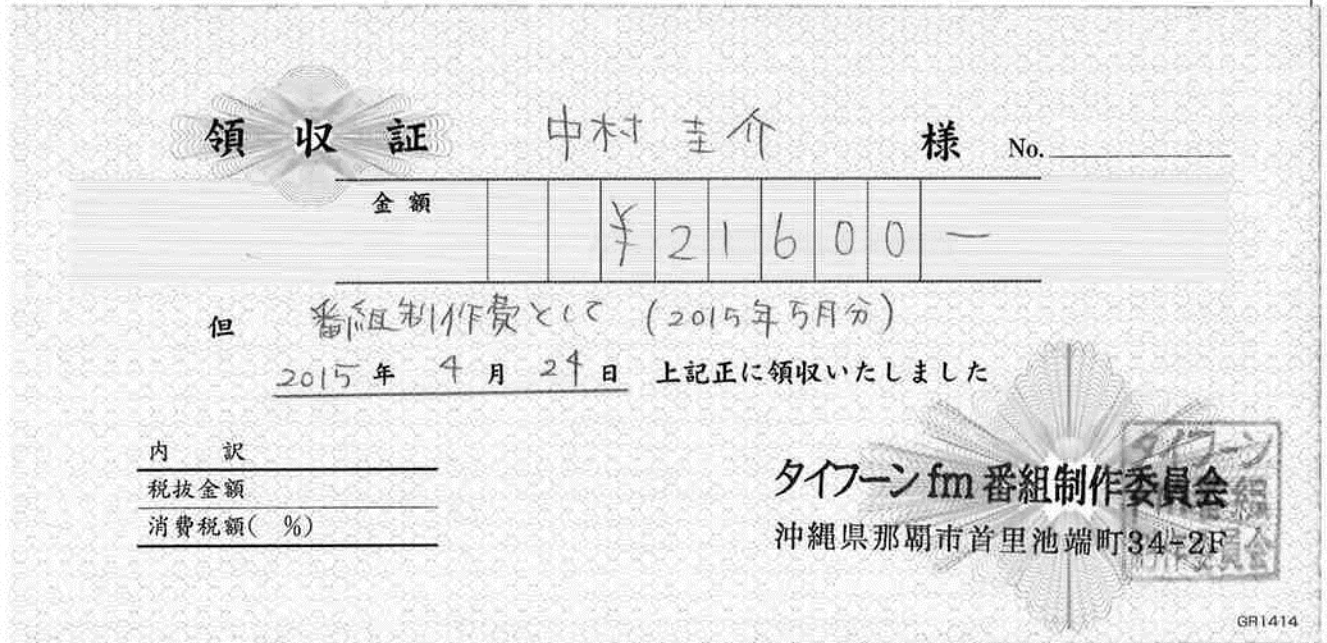 領収証 中村 圭介 様 No.
金額 ¥21600-
但 番組制作費として (2015年5月分)
2015年 4月 24日 上記正に領収いたしました
内訳
税抜金額
消費税額( %)
タイフーンfm番組制作委員会
沖縄県那覇市首里池端町34-2F
タイフーン
番組
制作委員会
GR1414